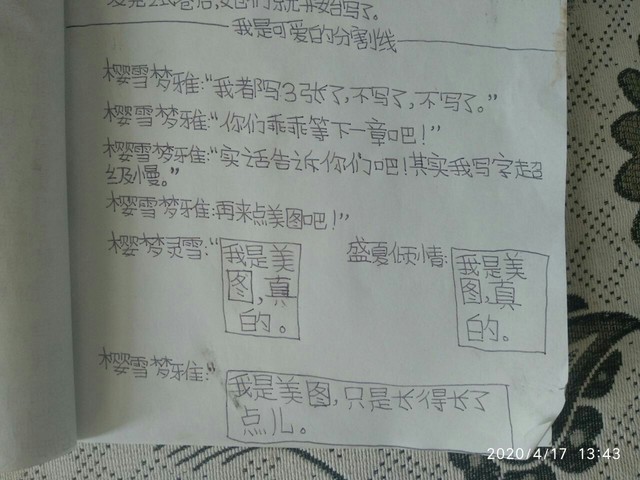 发完试卷后,她们就开始写了。
我是可爱的分割线
樱雪梦雅:“我都写3张了,不写了,不写了。”
樱雪梦雅:“你们乖乖等下一章吧!”
樱雪梦雅:“实话告诉你们吧!其实我写字超
级慢。”
樱雪梦雅:再来点美图吧!”
樱梦灵雪:“我是美图,真的。
盛夏倾情:我是美图,真的。
樱雪梦雅:“我是美图,只是长得长了
点儿。
2020/4/17 13:43